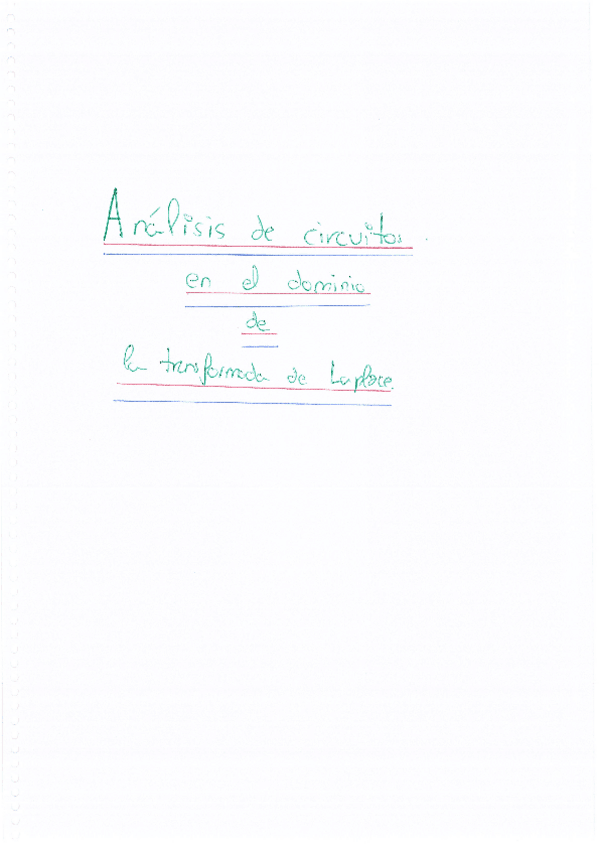 Análisis de circuitos.
en el dominio
de
la transformada de Laplace.